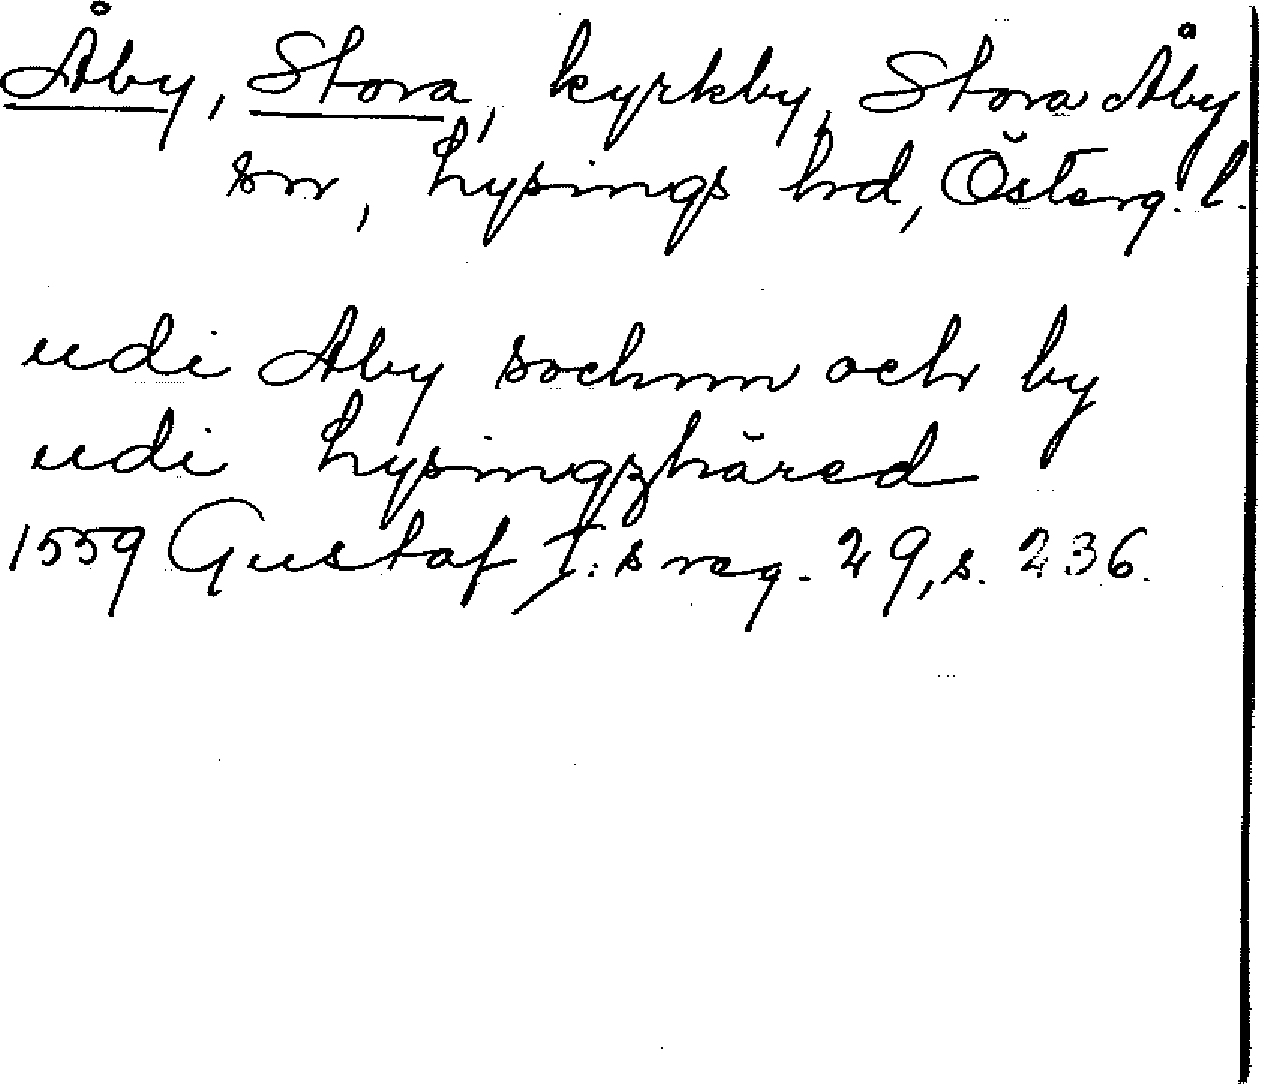 Åby, Stora, kyrkby, Stora Åby
sn, Lysings hd, Österg. l.
udi Aby sochnn och by
udi Lysingzhäred
1559 Gustaf I:s reg. 29, s. 236.